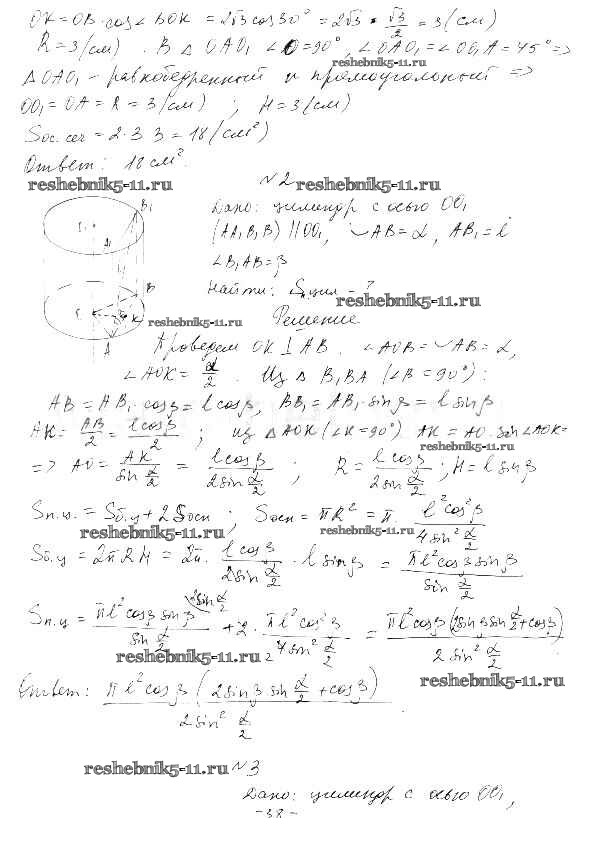 OK = OB · cos∠BOK = 2√3 cos30° = 2√3 · √3/2 = 3 (см)
R = 3 (см). В △ OAO₁ ∠O = 90°, ∠OAO₁ = ∠OO₁A = 45° =>
reshebnik5-11.ru
△ OAO₁ – равнобедренный и прямоугольный =>
OO₁ = OA = R = 3 (см) ; H = 3 (см)
Sос.сеч = 2·3·3 = 18 (см²)
Ответ: 18 см².
reshebnik5-11.ru
№2
reshebnik5-11.ru
Дано: цилиндр с осью OO₁
(AA₁B₁B) || OO₁, ◡AB = α, AB₁ = l
∠B₁AB = β
Найти: Sп.цил - ?
reshebnik5-11.ru
Решение
reshebnik5-11.ru
Проведем OK ⊥ AB. ∠AOB = ◡AB = α,
∠AOK = α/2. Из △ B₁BA (∠B = 90°):
AB = AB₁ · cosβ = l cosβ, BB₁ = AB₁ · sinβ = l sinβ
AK = AB/2 = l cosβ/2 ; из △ AOK (∠K = 90°) AK = AO · sin∠AOK =
reshebnik5-11.ru
=> AO = AK/sin α/2 = l cosβ/2 sin α/2 ; R = l cosβ/2 sin α/2 ; H = l sinβ
Sп.ц. = Sб.ц + 2Sосн ; Sосн = πR² = π · l² cos²β/4 sin² α/2
reshebnik5-11.ru
reshebnik5-11.ru
Sб.ц = 2πRH = 2π · l cosβ/2 sin α/2 · l sinβ = πl² cosβ sinβ/sin α/2
Sп.ц = πl² cosβ sinβ/sin α/2 + 2 · πl² cos²β/4 sin² α/2 = πl² cosβ (2 sinβ sin α/2 + cosβ)/2 sin² α/2
reshebnik5-11.ru
reshebnik5-11.ru
Ответ: πl² cosβ (2 sinβ sin α/2 + cosβ)/2 sin² α/2
reshebnik5-11.ru
№3
Дано: цилиндр с осью OO₁,
-38-